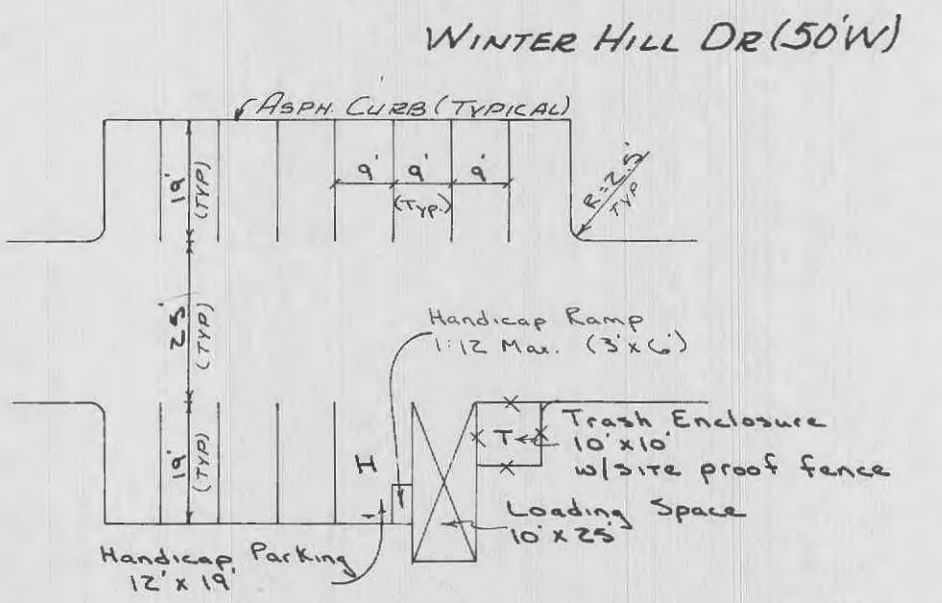 WINTER HILL DR (50'W)
ASPH. CURB (TYPICAL)
19'
(TYP)
9'
9'
9'
(TYP.)
R=2.5'
TYP
25'
(TYP)
Handicap Ramp
1:12 Max. (3'x6')
19'
(TYP)
H
T
Trash Enclosure
10'x10'
w/site proof fence
Loading Space
10'x25'
Handicap Parking
12'x19'